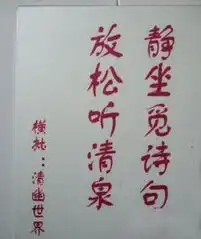 静坐觅诗句
放松听清泉
横批：清幽世界